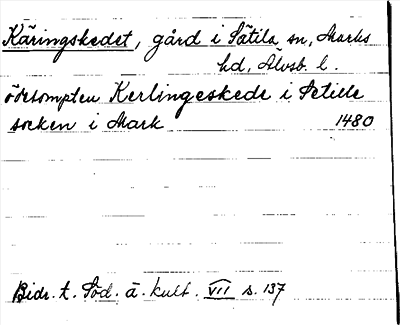 Käringskedet, gård i Sätila sn, Marks
hd, Älvsb. l.
ödetompten Kerlingeskede i Setille
socken i Mark 1480
Bidr. t. Söd. ä. kult. VII s. 137